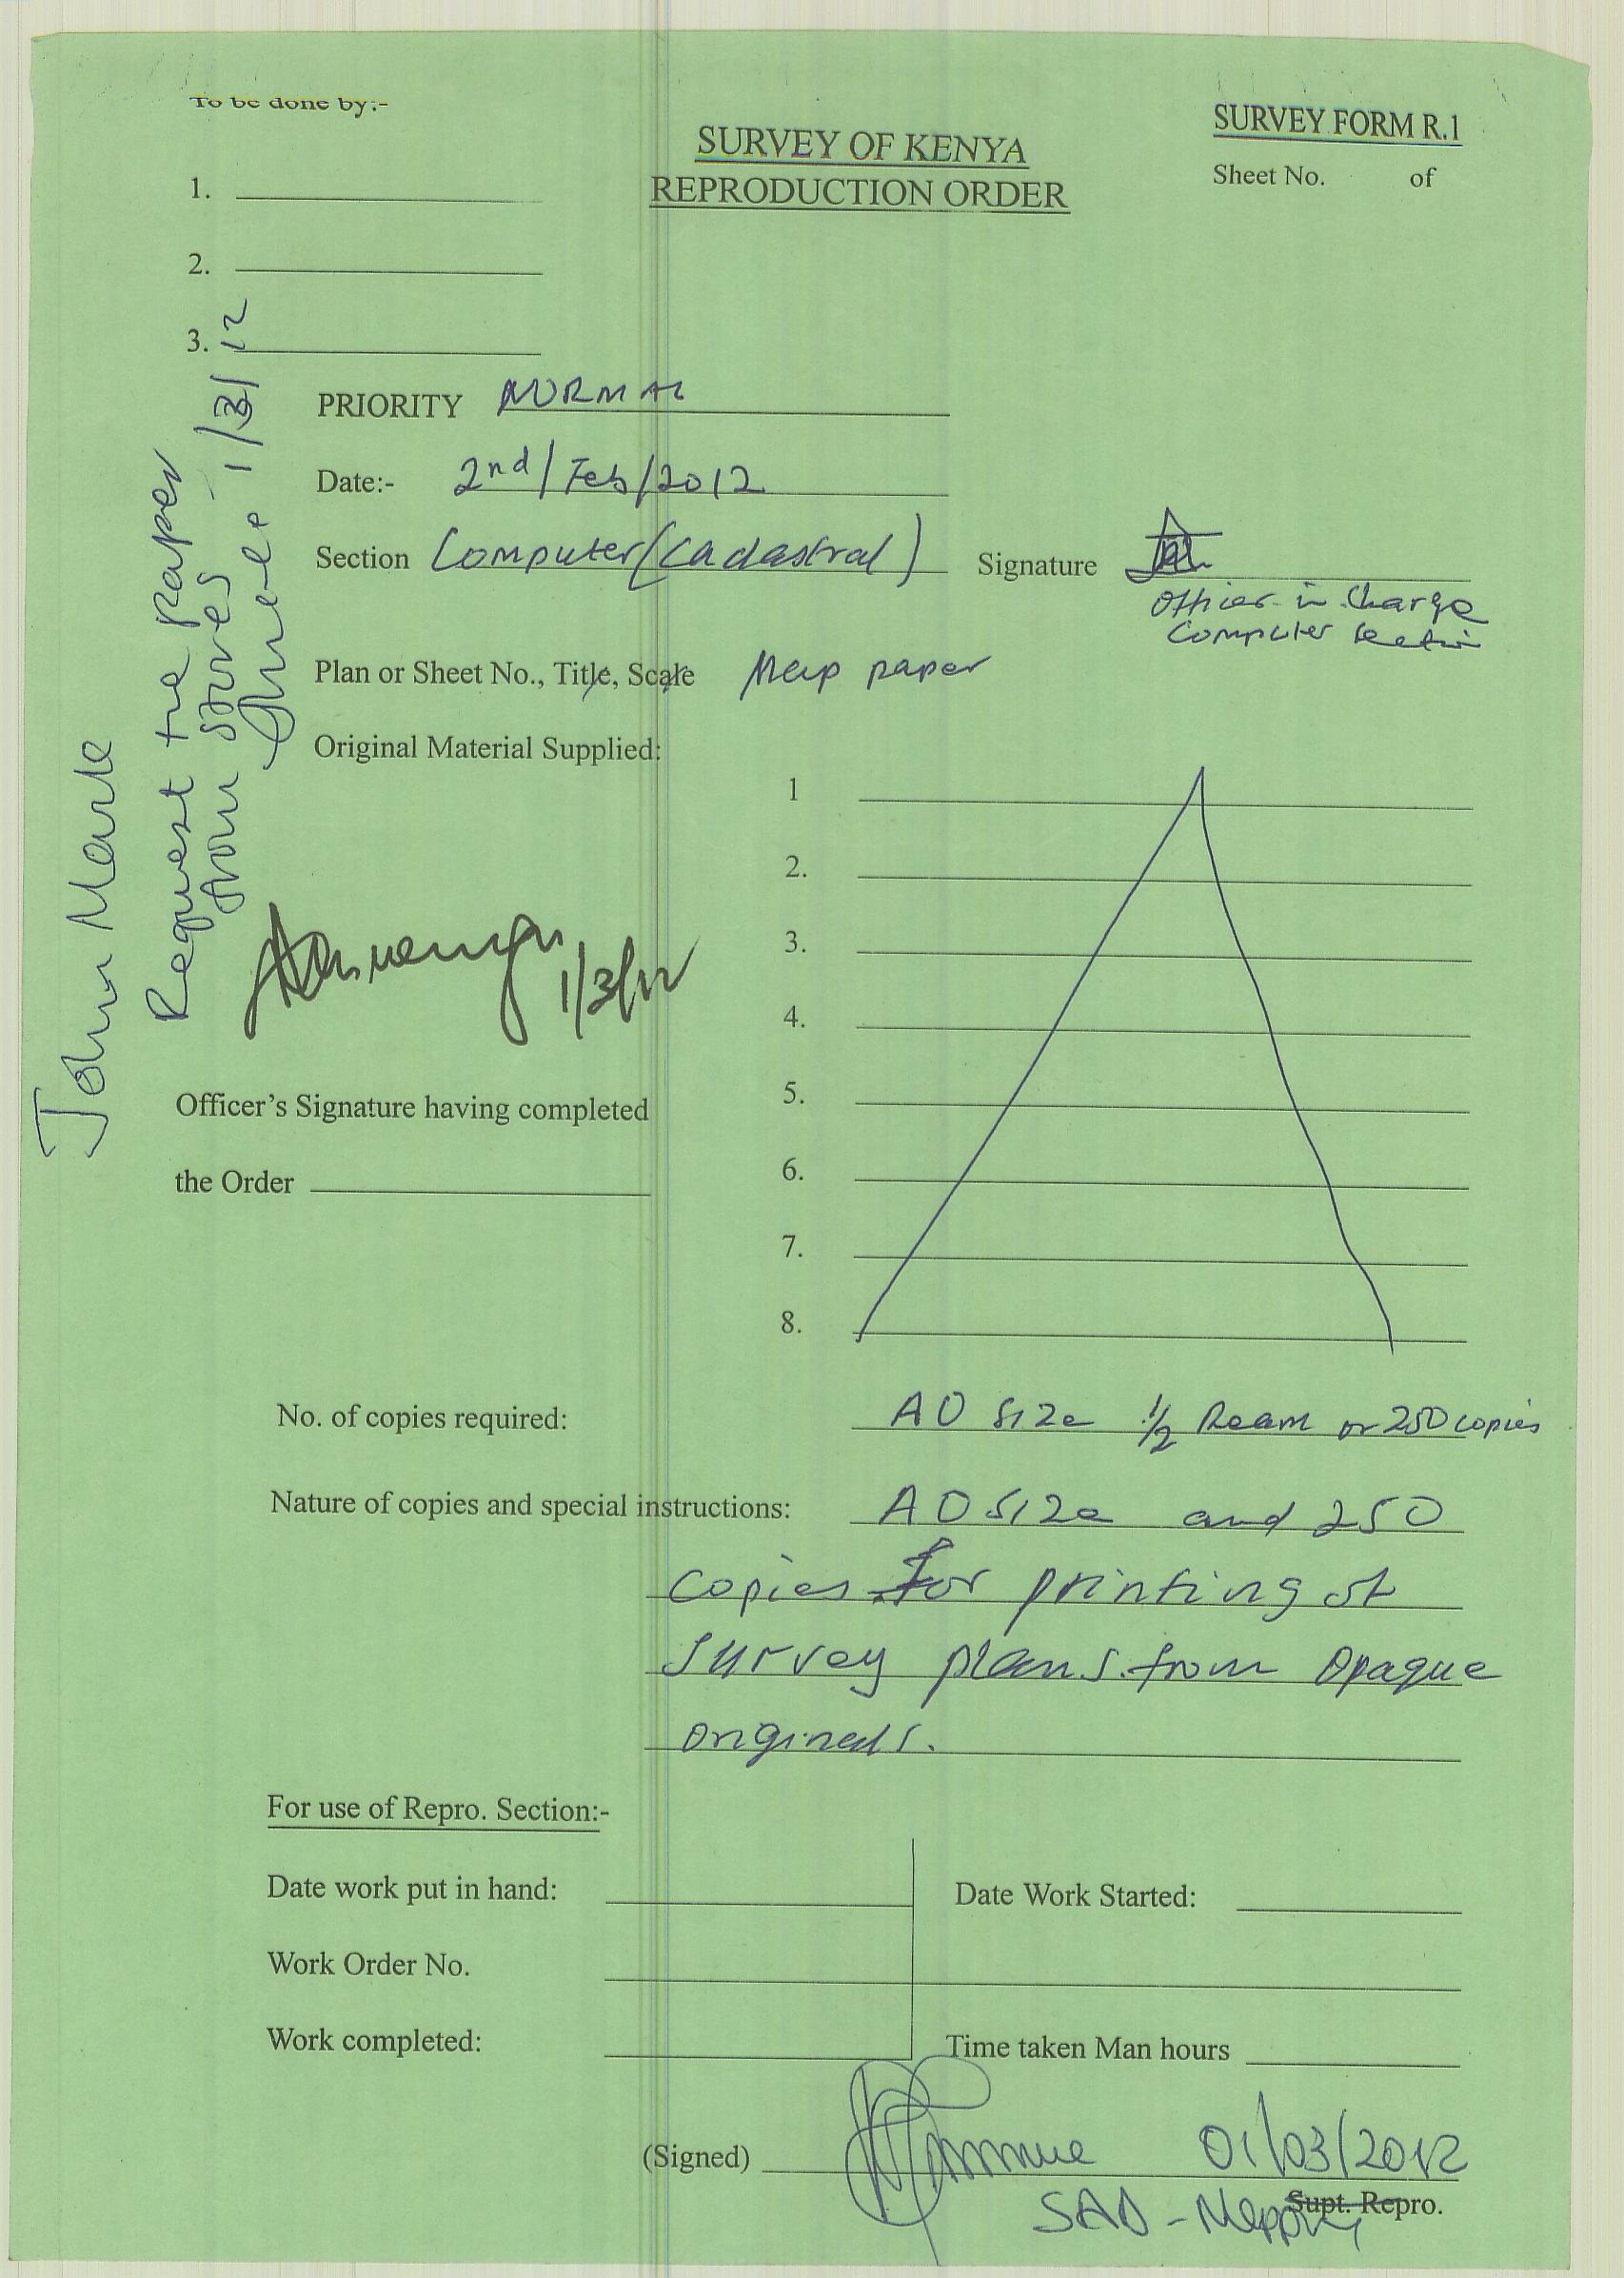 To be done by:-
SURVEY FORM R.1
SURVEY OF KENYA
REPRODUCTION ORDER
Sheet No. of
1.
2.
3.
PRIORITY NORMAL
Date:- 2nd/Feb/2012
Section Computer (Cadastral) Signature
Officer in Charge
Computer Section
Plan or Sheet No., Title, Scale Map paper
Original Material Supplied:
1
2.
3.
4.
5.
6.
7.
8.
John Mark
Request the paper
from stores
1/3/12
1/3/12
Officer's Signature having completed
the Order
No. of copies required: A0 size 1/2 Ream or 250 copies
Nature of copies and special instructions: A0 size and 250
copies for printing of
survey plans from opaque
originals.
For use of Repro. Section:-
Date work put in hand: Date Work Started:
Work Order No.
Work completed: Time taken Man hours
(Signed) 01/03/2012
Supt. Repro.
SAD - Mapping